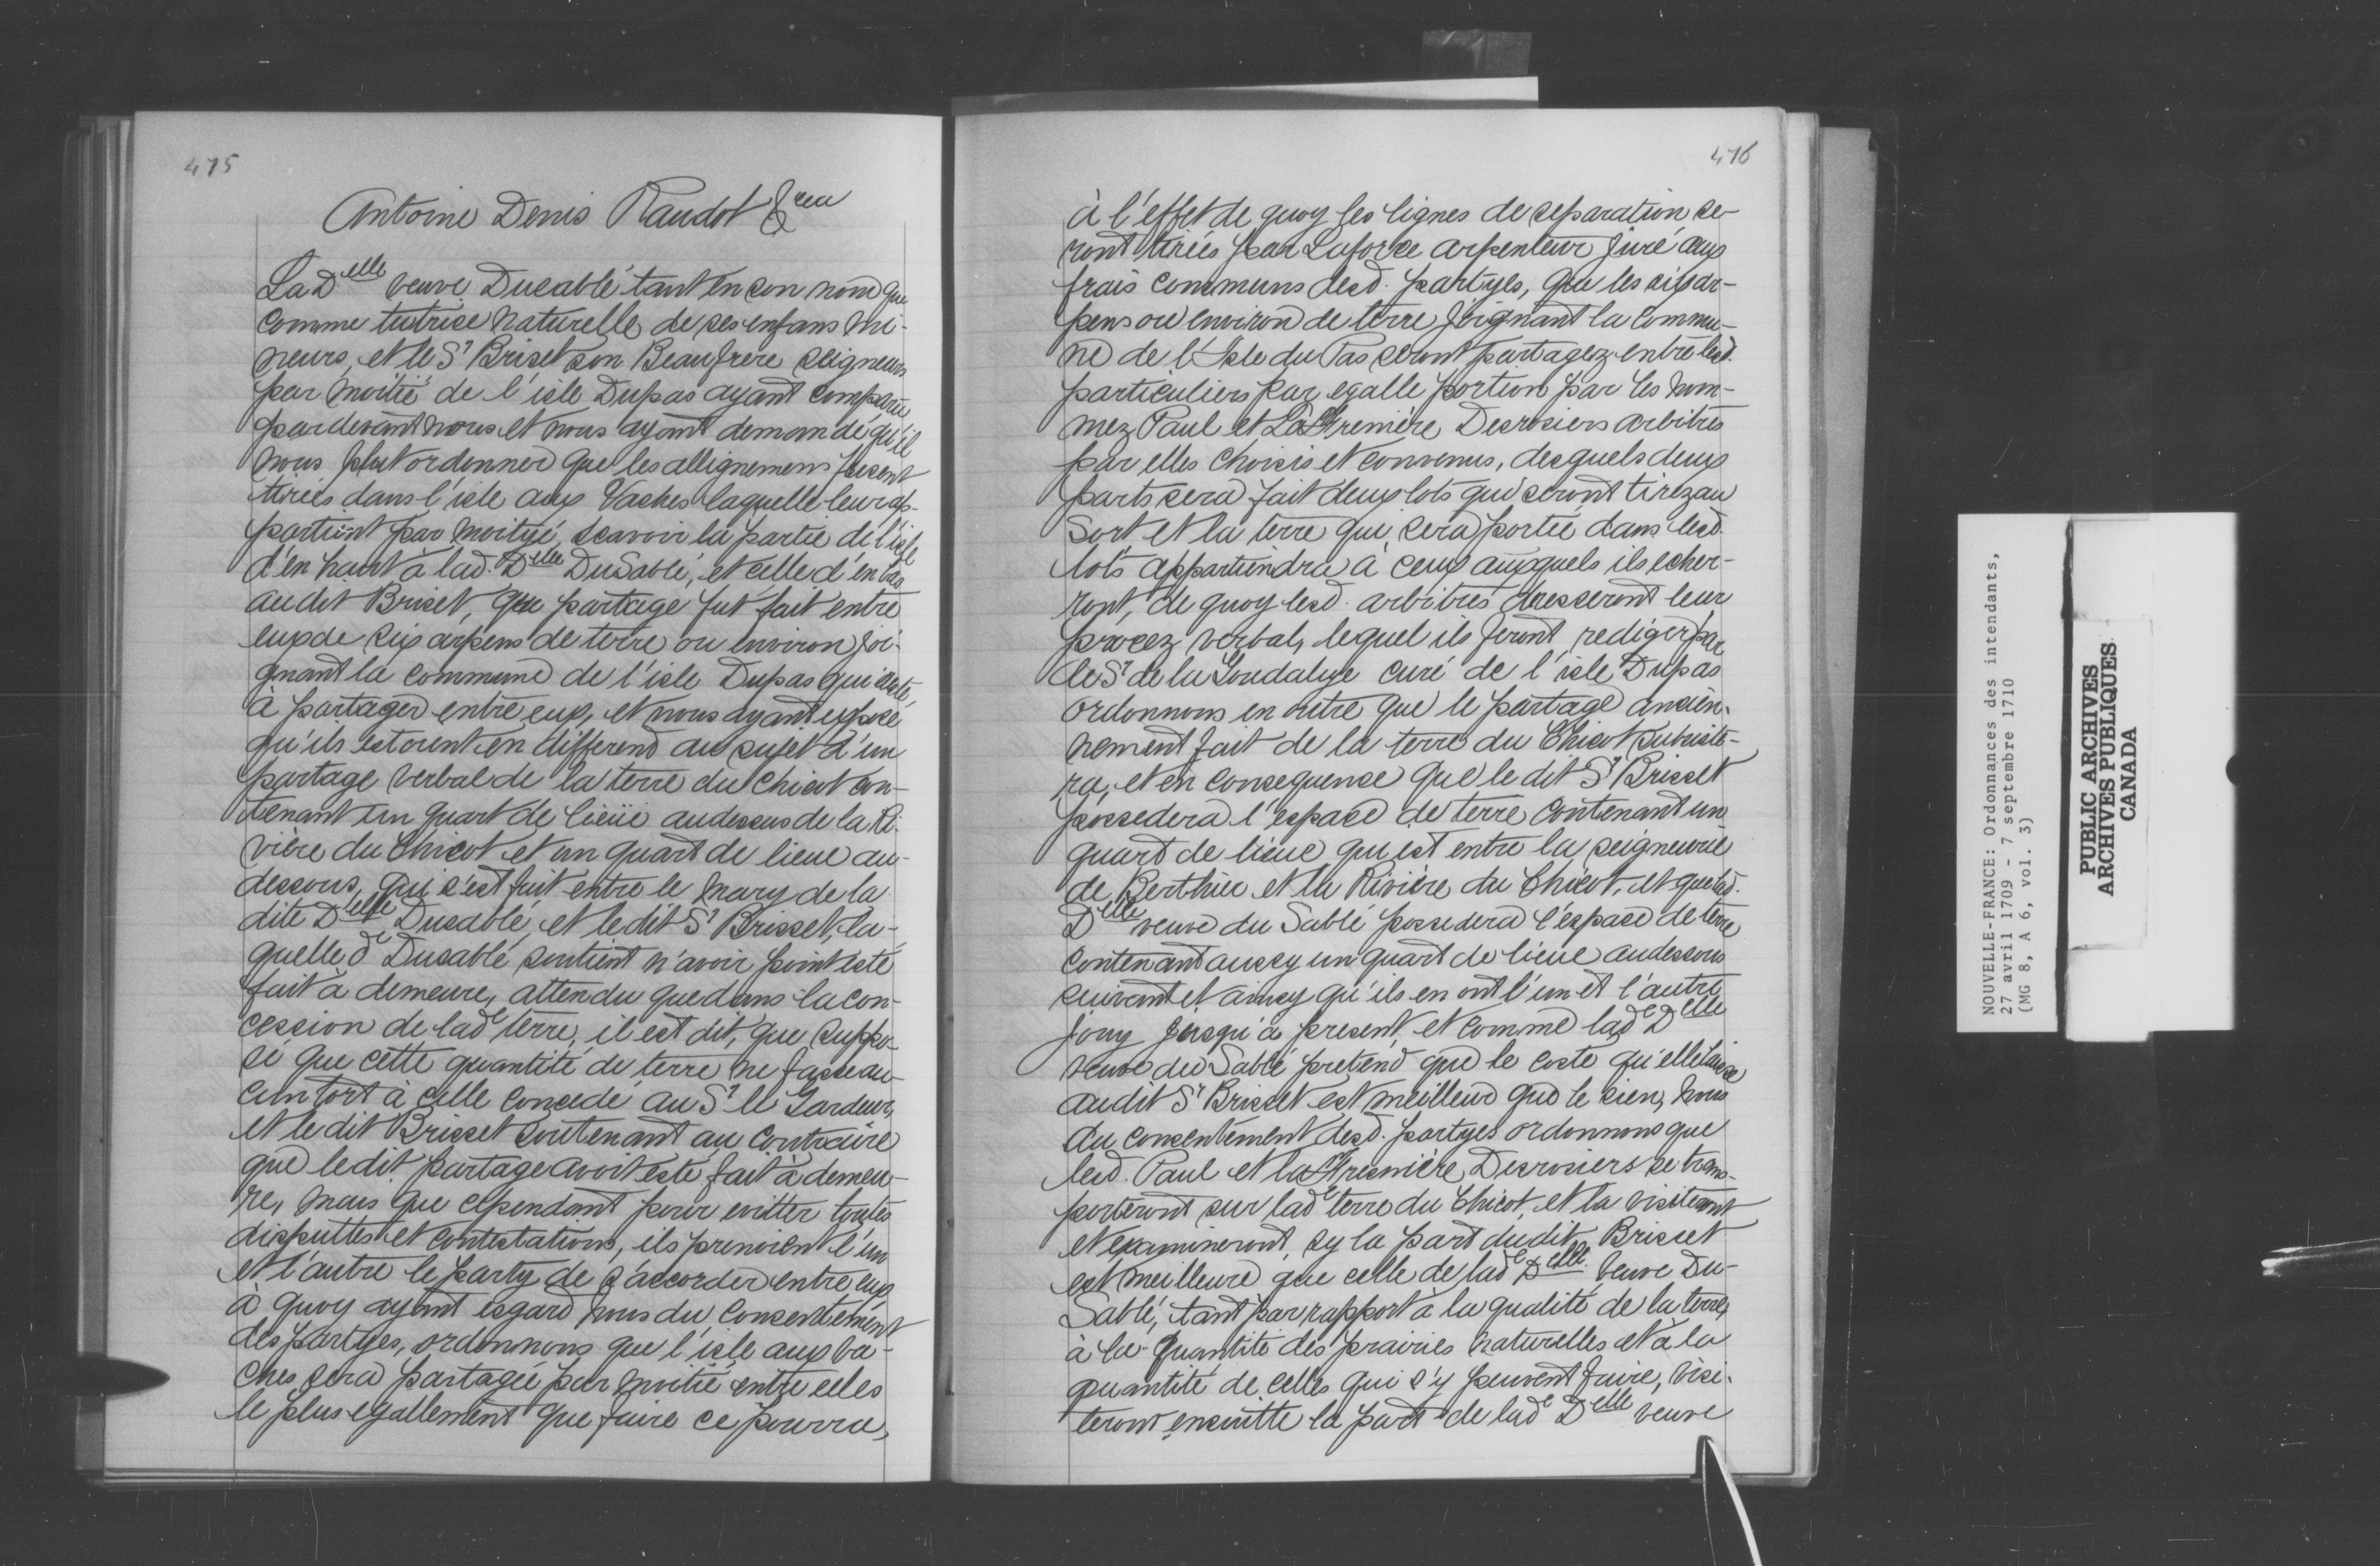 475
Antoine Denis Raudot &cea
La Delle veuve Dusablé tant en son nom que
comme tutrice naturelle de ses enfans mi-
neurs, et le Sr Briset son Beaufrere seigneurs
par moitié de l'isle Dupas ayant comparu
pardevant nous et nous ayant demandé qu'il
nous plut ordonner que les allignemens fusent
tirées dans l'isle aux Vaches laquelle leur ap-
partient par moityé, scavoir la partie de l'isle
d'en haut à lad. Delle DuSablé, et celle d'en bas
audit Briset, que partage fut fait entre
eux de six arpens de terre ou environ joi-
gnant la commune de l'isle Dupas qui reste
à partager entre eux, et nous ayant exposé
qu'ils estoient en differend au sujet d'un
partage verbal de la terre du Chicot con-
tenant un quart de lieüe audessus de la Ri-
vière du Chicot et un quart de lieue au-
dessous, qui s'est fait entre le mary de la
dite Delle Dusablé, et ledit Sr Brisset, la-
quelle de Dusablé soutient n'avoir point esté
fait à demeure, attendu que dans la con-
cession de lade terre, il est dit, que suppo-
sé que cette quantité de terre ne fasse au-
cun tort à celle concedé au Sr le Gardeur,
et le dit Brisset soutenant au contraire
que ledit partage avoit esté fait à demeu-
re, mais que cependant pour evitter toutes
disputtes et contestations, ils prenoient l'un
et l'autre le party de s'accorder entre eux
à quoy ayant esgard nous du consentement
des partyes, ordonnons que l'isle aux va-
ches sera partagée par moitié entre elles
le plus egallement que faire ce pourra,
476
à l'effet de quoy les lignes de separation se-
ront tirées par Laforce arpenteur juré aux
frais communs desd. partyes, que les six ar-
pens ou environ de terre joignant la commu-
ne de l'Isle du Pas seront partagez entre lesd.
particuliers par egalle portion par les nom-
mez Paul et La Fremière Desrosiers arbitres
par elles choisis et convenus, desquels deux
parts sera fait deux lots qui seront tirez au
sort et la terre qui sera portée dans lesd.
lots appartiendra à ceux auxquels ils echer-
ront, de quoy lesd. arbitres dresseront leur
procez verbal, lequel ils feront rediger par
le Sr de la Goudalye curé de l'isle Dupas
ordonnons en outre que le partage ancien-
nement fait de la terre du Chicot subsiste-
ra, et en consequence que le dit Sr Brisset
possedera l'espace de terre contenant un
quart de lieue qui est entre la seigneurie
de Berthier et la Rivière du Chicot, et que lad.
Delle veuve du Sablé possedera l'espace de terre
contenant aussy un quart de lieue audessous
suivant et ainsy qu'ils en ont l'un et l'autre
jouy jusqu'à present, et comme lade Delle
veuve du Sablé pretend que le costé qu'elle laisse
audit Sr Brisset est meilleur que le sien, nous
du consentement desd. partyes ordonnons que
lesd. Paul et la Fresnière Desrosiers se trans-
porteront sur lade terre du Chicot, et la visiteront
et examineront, sy la part dudit Brisset
est meilleure que celle de lade Delle veuve Du-
Sablé, tant par rapport à la qualité de la terre,
à la quantité des prairies naturelles et à la
quantité de celles qui s'y peuvent faire, visi-
teront ensuitte la part de lade Delle veuve
NOUVELLE-FRANCE: Ordonnances des intendants,
27 avril 1709 - 7 septembre 1710
(MG 8, A 6, vol. 3)
PUBLIC ARCHIVES
ARCHIVES PUBLIQUES
CANADA